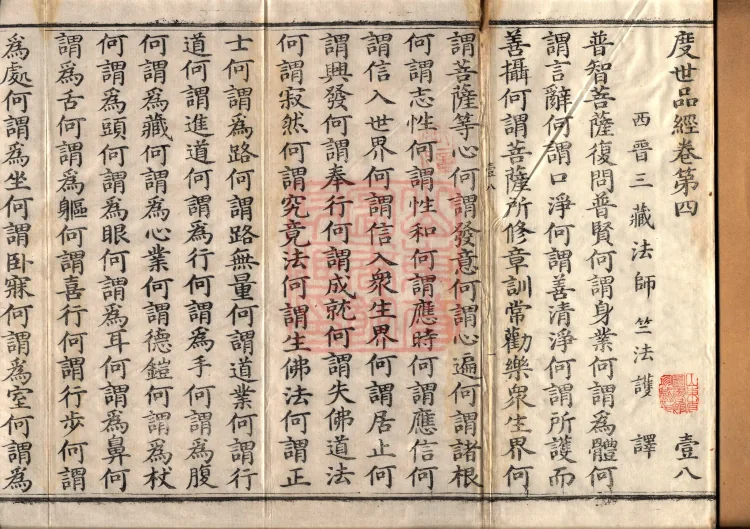 度世品經卷第四 壹八
西晉三藏法師竺法護 譯
普智菩薩復問普賢何謂身業何謂為體何
謂言辭何謂口淨何謂善清淨何謂所護而
善攝何謂菩薩所修章訓常勸樂衆生界何
謂菩薩等心何謂發意何謂心遍何謂諸根
何謂志性何謂性和何謂應時何謂應信何
謂信入世界何謂信入衆生界何謂居止何
謂興發何謂奉行何謂成就何謂失佛道法
何謂寂然何謂究竟法何謂生佛法何謂正
士何謂為路何謂路無量何謂道業何謂行
道何謂進道何謂為行何謂為手何謂為腹
何謂為藏何謂為心業何謂德鎧何謂為杖
何謂為頭何謂為眼何謂為耳何謂為鼻何
謂為舌何謂為軀何謂喜行何謂行步何謂
為處何謂為坐何謂卧寐何謂為室何謂為
壹八